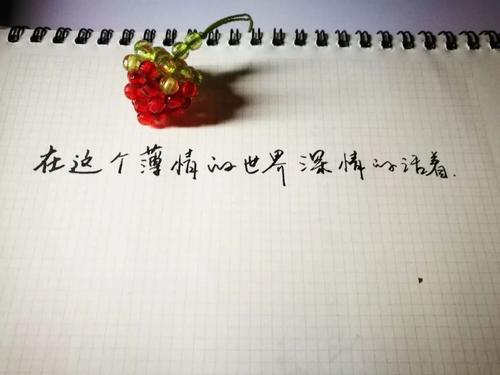 在这个薄情的世界深情的活着.